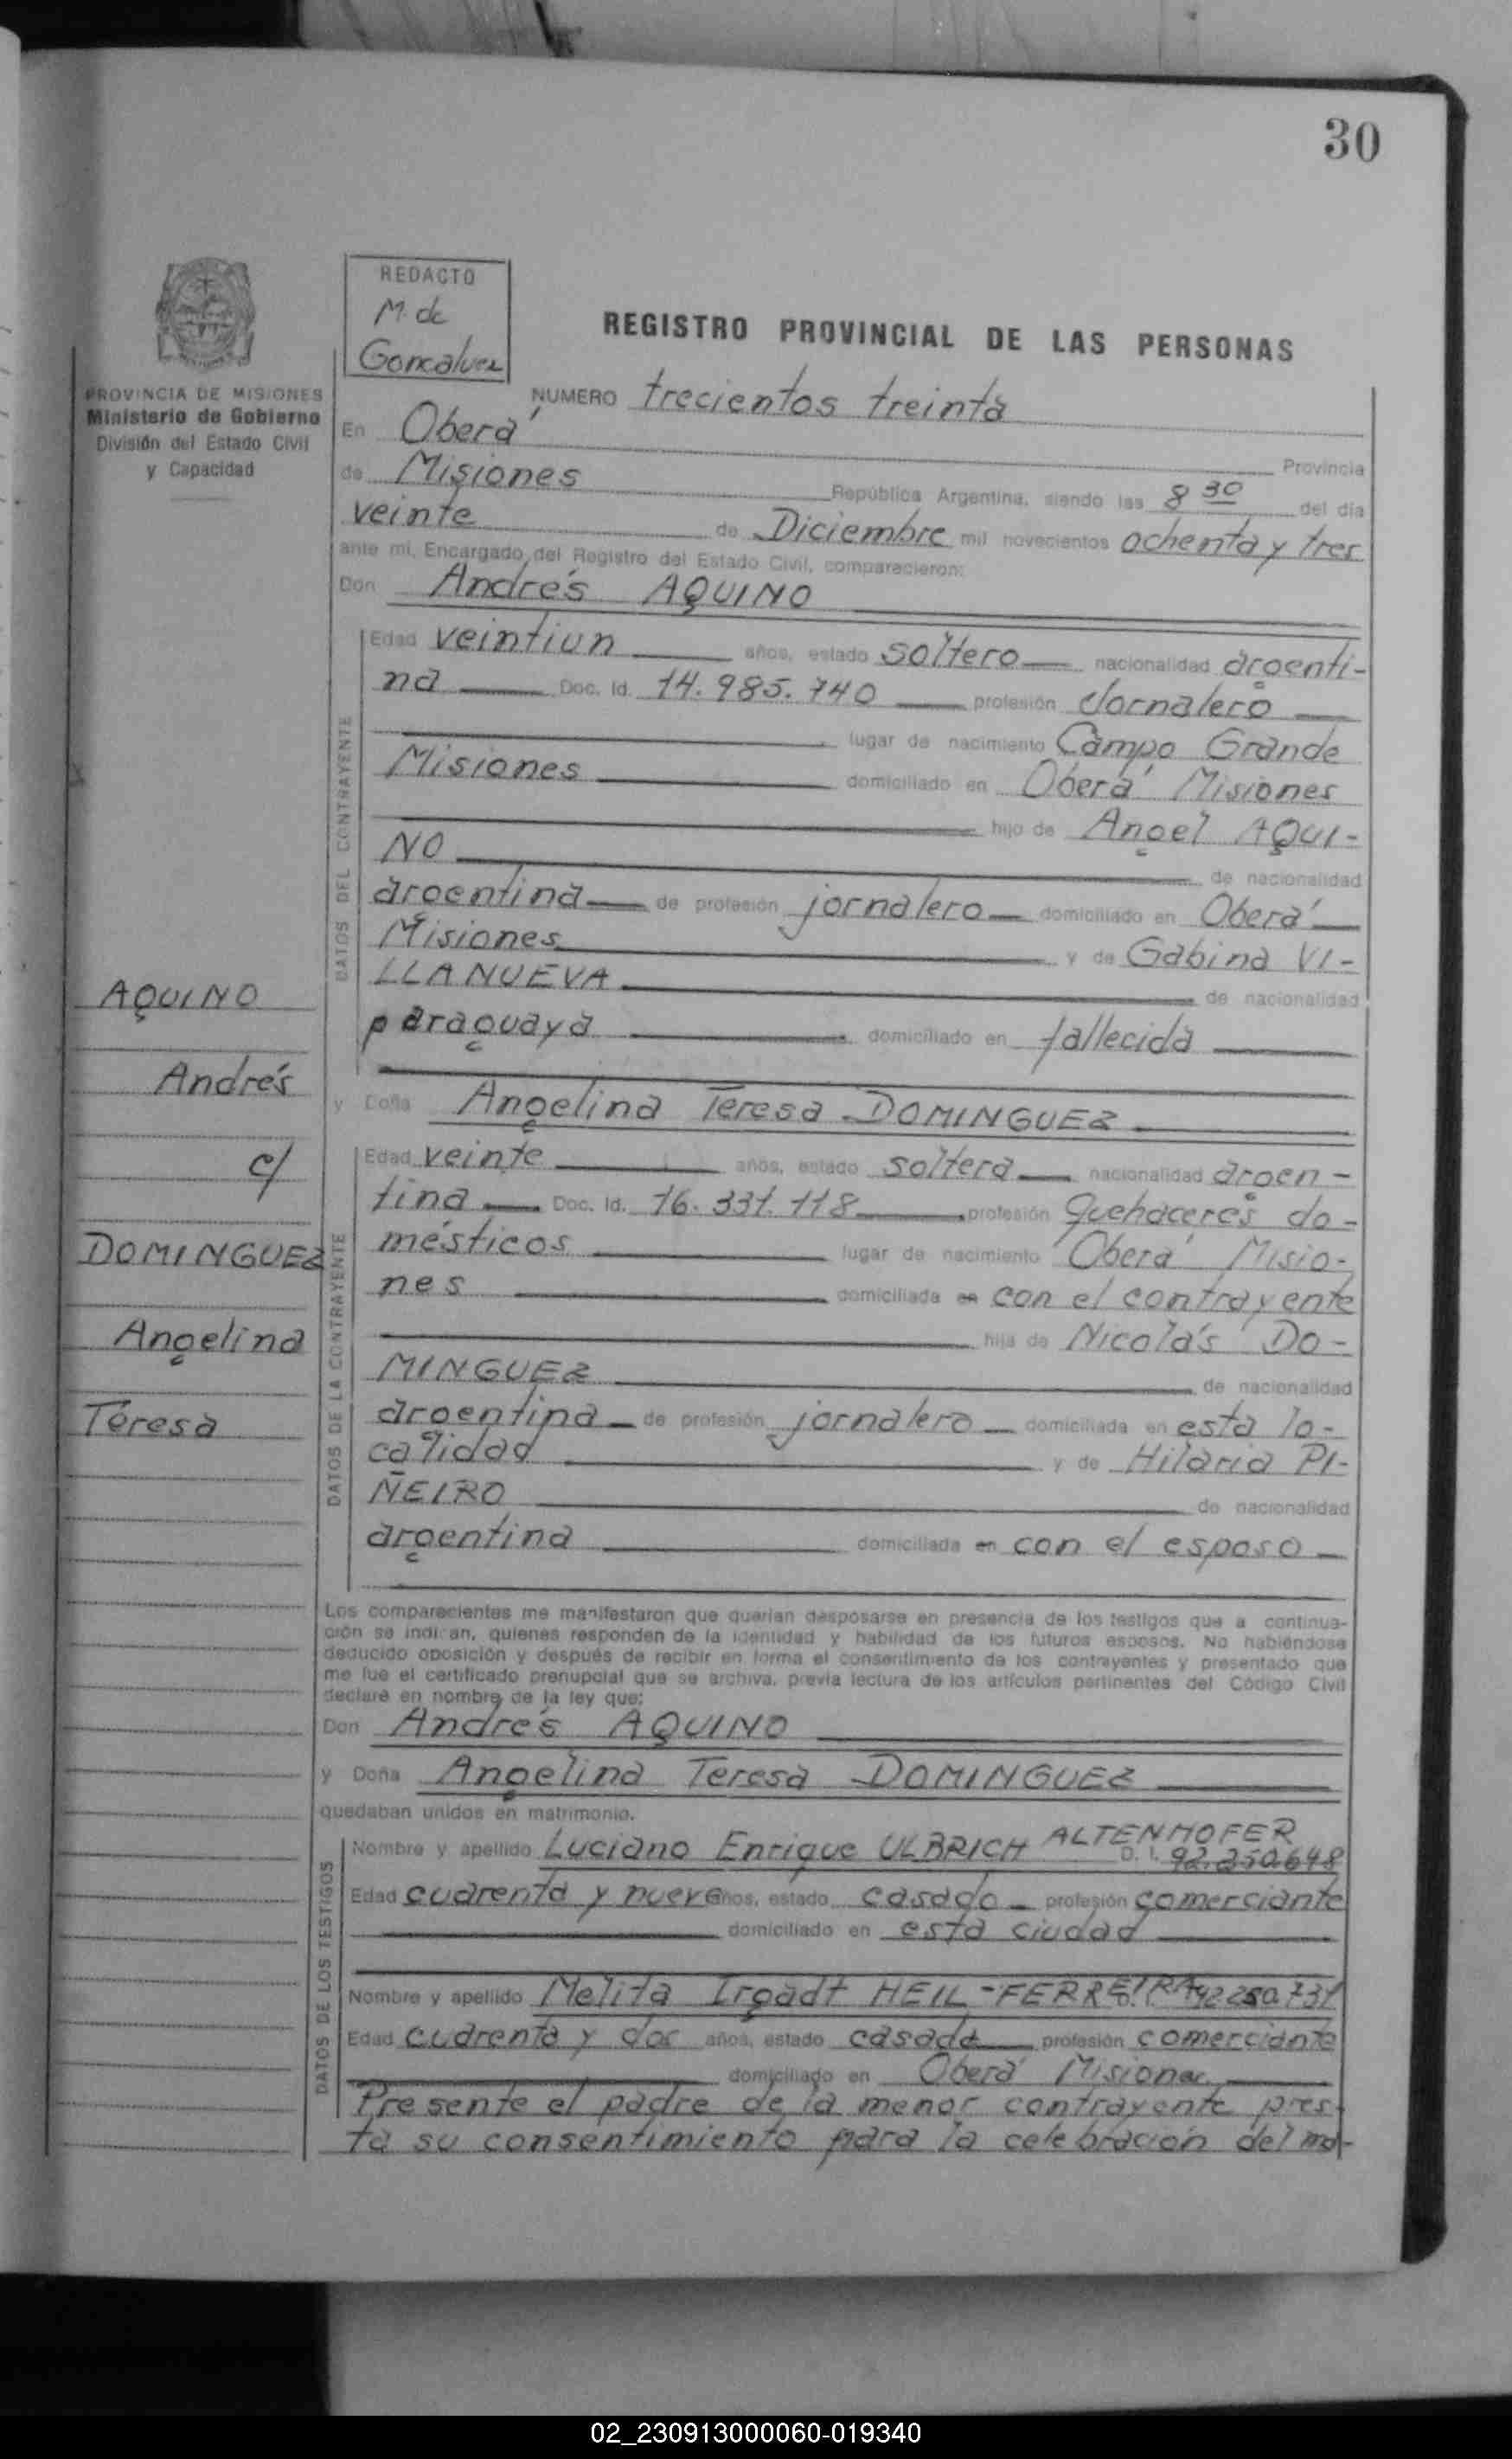 30
REDACTO
M. de
Goncalvez
REGISTRO PROVINCIAL DE LAS PERSONAS
PROVINCIA DE MISIONES
Ministerio de Gobierno
División del Estado Civil
y Capacidad
NUMERO trecientos treinta
En Oberá Provincia
de Misiones República Argentina, siendo las 8 30 del día
veinte de Diciembre mil novecientos ochenta y tres
ante mi, Encargado del Registro del Estado Civil, comparecieron:
Don Andrés AQUINO
DATOS DEL CONTRAYENTE
Edad veintiun años, estado soltero nacionalidad argenti-
na Doc. Id. 14.985.740 profesión Jornalero
lugar de nacimiento Campo Grande
Misiones domiciliado en Oberá Misiones
hijo de Angel AQUI-
NO de nacionalidad
argentina de profesión jornalero domiciliado en Oberá
Misiones y de Gabina VI-
LLANUEVA de nacionalidad
paraguaya domiciliado en fallecida
AQUINO
Andrés
c/
DOMINGUEZ
Angelina
Teresa
y Doña Angelina Teresa DOMINGUEZ
DATOS DE LA CONTRAYENTE
Edad veinte años, estado soltera nacionalidad argen-
tina Doc. Id. 16.331.118 profesión Quehaceres do-
mésticos lugar de nacimiento Oberá Misio-
nes domiciliada en con el contrayente
hija de Nicolás DO-
MINGUEZ de nacionalidad
argentina de profesión jornalero domiciliada en esta lo-
calidad y de Hilaria PI-
ÑEIRO de nacionalidad
argentina domiciliada en con el esposo
Los comparecientes me manifestaron que querían desposarse en presencia de los testigos que a continua-
ción se indican, quienes responden de la identidad y habilidad de los futuros esposos. No habiéndose
deducido oposición y después de recibir en forma el consentimiento de los contrayentes y presentado que
me fue el certificado prenupcial que se archiva, previa lectura de los artículos pertinentes del Código Civil
declaré en nombre de la ley que:
Don Andrés AQUINO
y Doña Angelina Teresa DOMINGUEZ
quedaban unidos en matrimonio.
DATOS DE LOS TESTIGOS
Nombre y apellido Luciano Enrique ULBRICH ALTENHOFER
D. I. 92.250.648
Edad cuarenta y nueve años, estado casado profesión comerciante
domiciliado en esta ciudad
Nombre y apellido Melita Irgadt HEIL-FERREIRA 92250.731
Edad cuarenta y dos años, estado casada profesión comerciante
domiciliado en Oberá Misiones
Presente el padre de la menor contrayente pres-
ta su consentimiento para la celebración del ma-
02_230913000060-019340